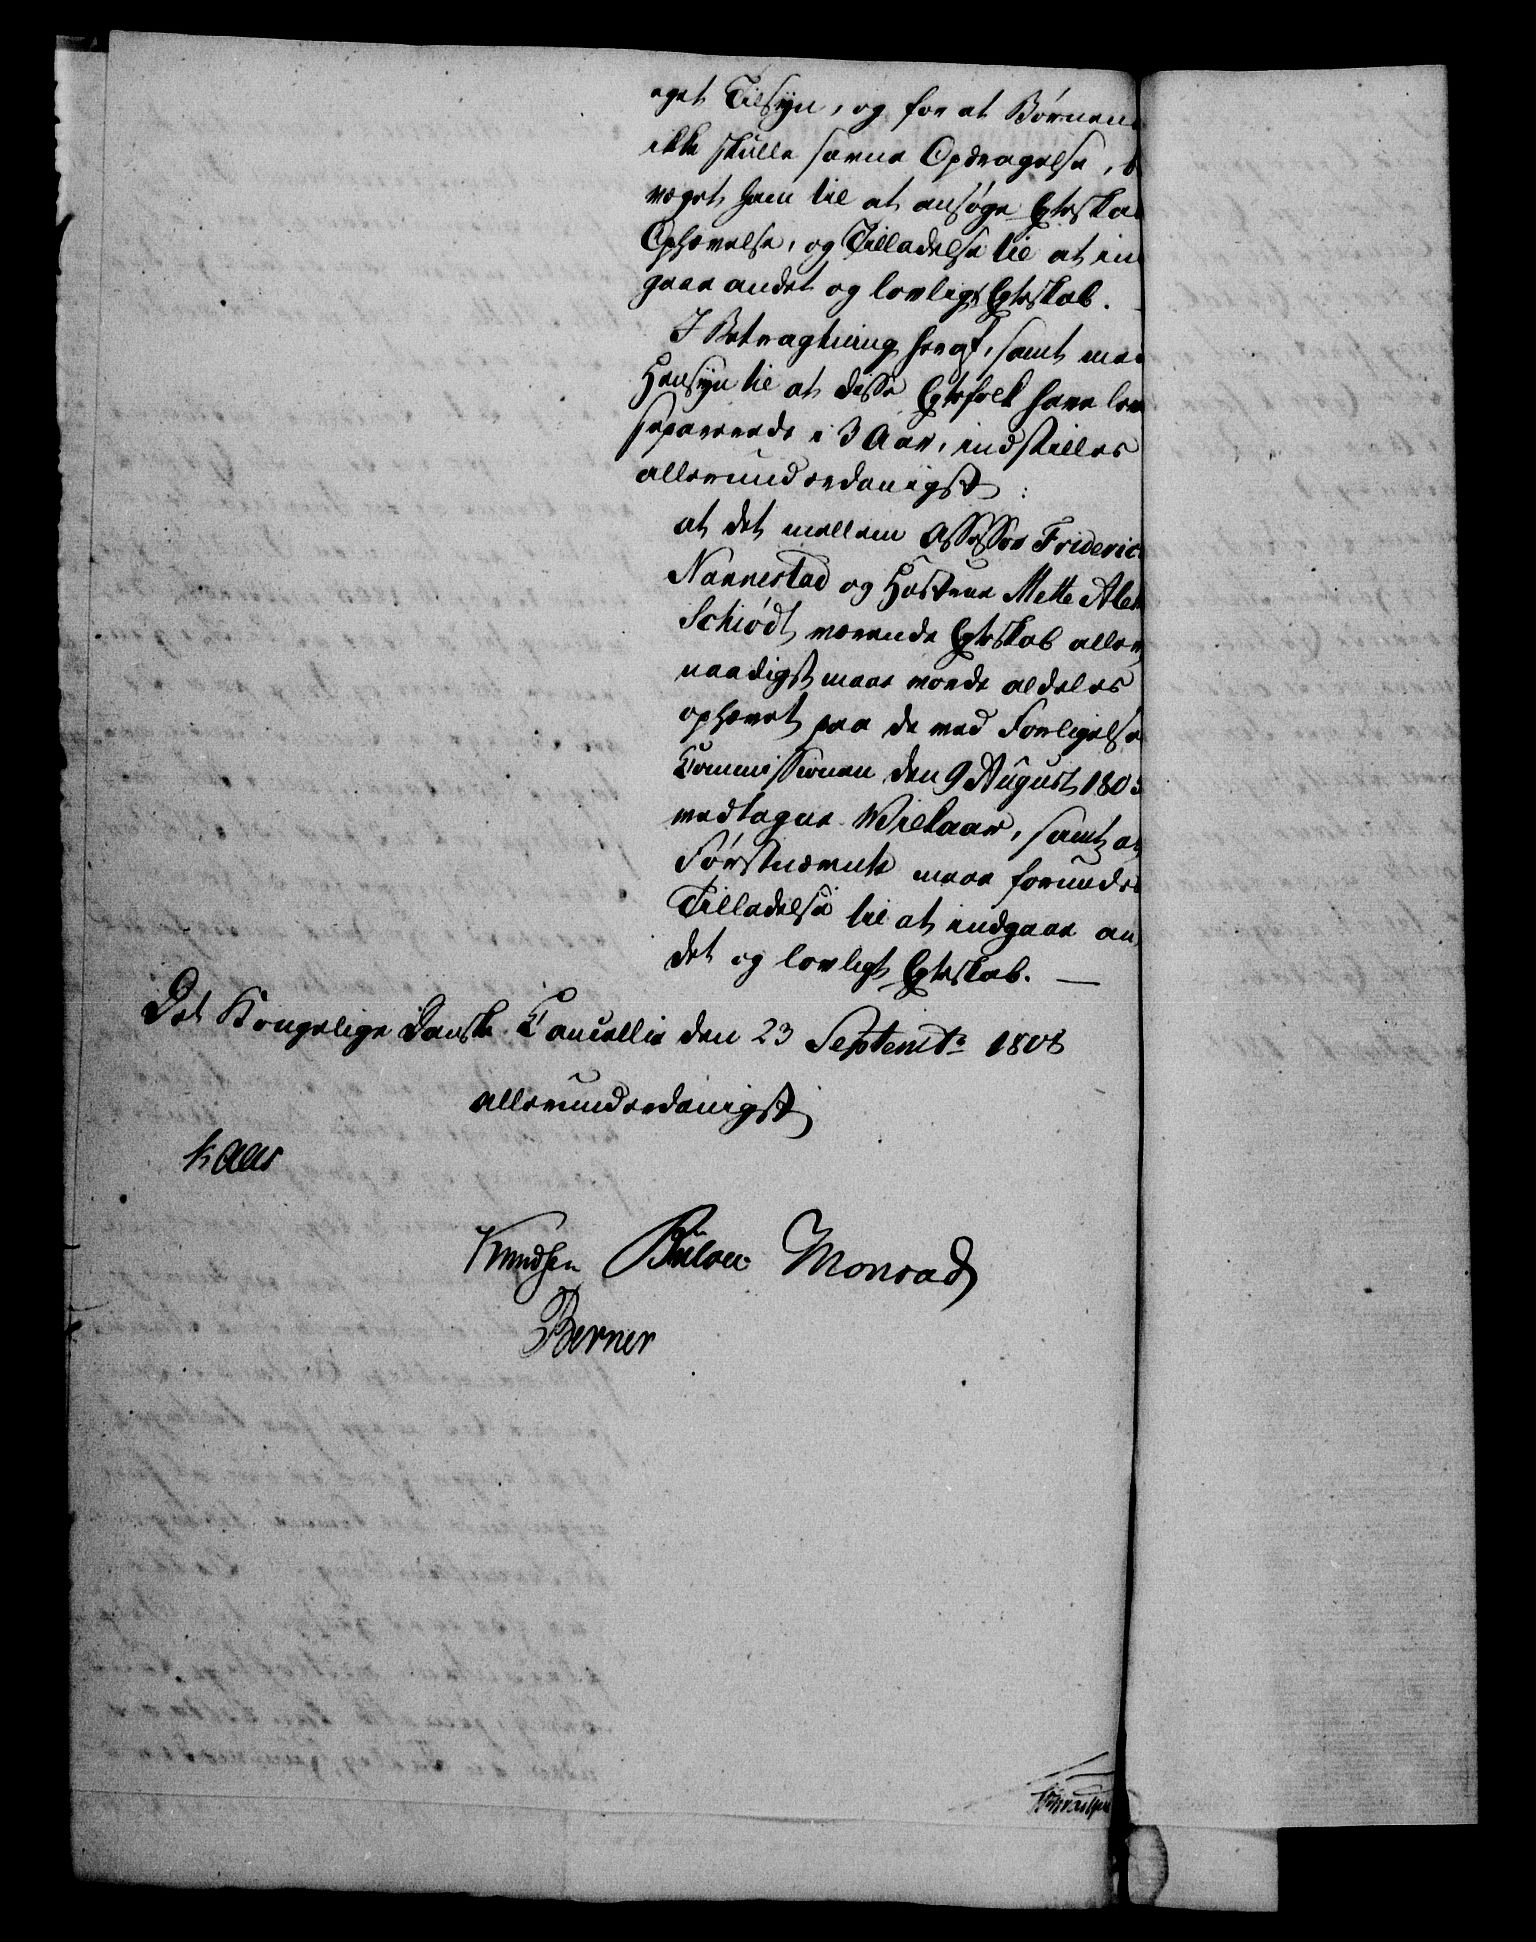 eget Tilsyn, og for at Børnene
ikke skulle savne Opdragelse, be
væget ham til at ansøge Egteskab
Ophævelse, og Tilladelse til at ind
gaae andet og lovligt Egteskab.
I Betragtning heraf, samt med
Hensyn til at disse Egtefolk have levet
separerede i 3 Aar, indstilles
allerunderdanigst:
at det mellem Assessor Frideric
Nannestad og Hustrue Mette Alet
Schiødt værende Egteskab aller
naadigst maae vorde aldeles
ophævet paa de ved Forligelse
Commissionen den 9 August 1805
vedtagne Vilkaar, samt at
Førstnævnte maae forundes
Tilladelse til at indgaae an
det og lovligt Egteskab. —
Det Kongelige Danske Cancellie den 23 Septembr 1808
allerunderdanigst
Kaas
Knudsen Bülow Monrad
Berner